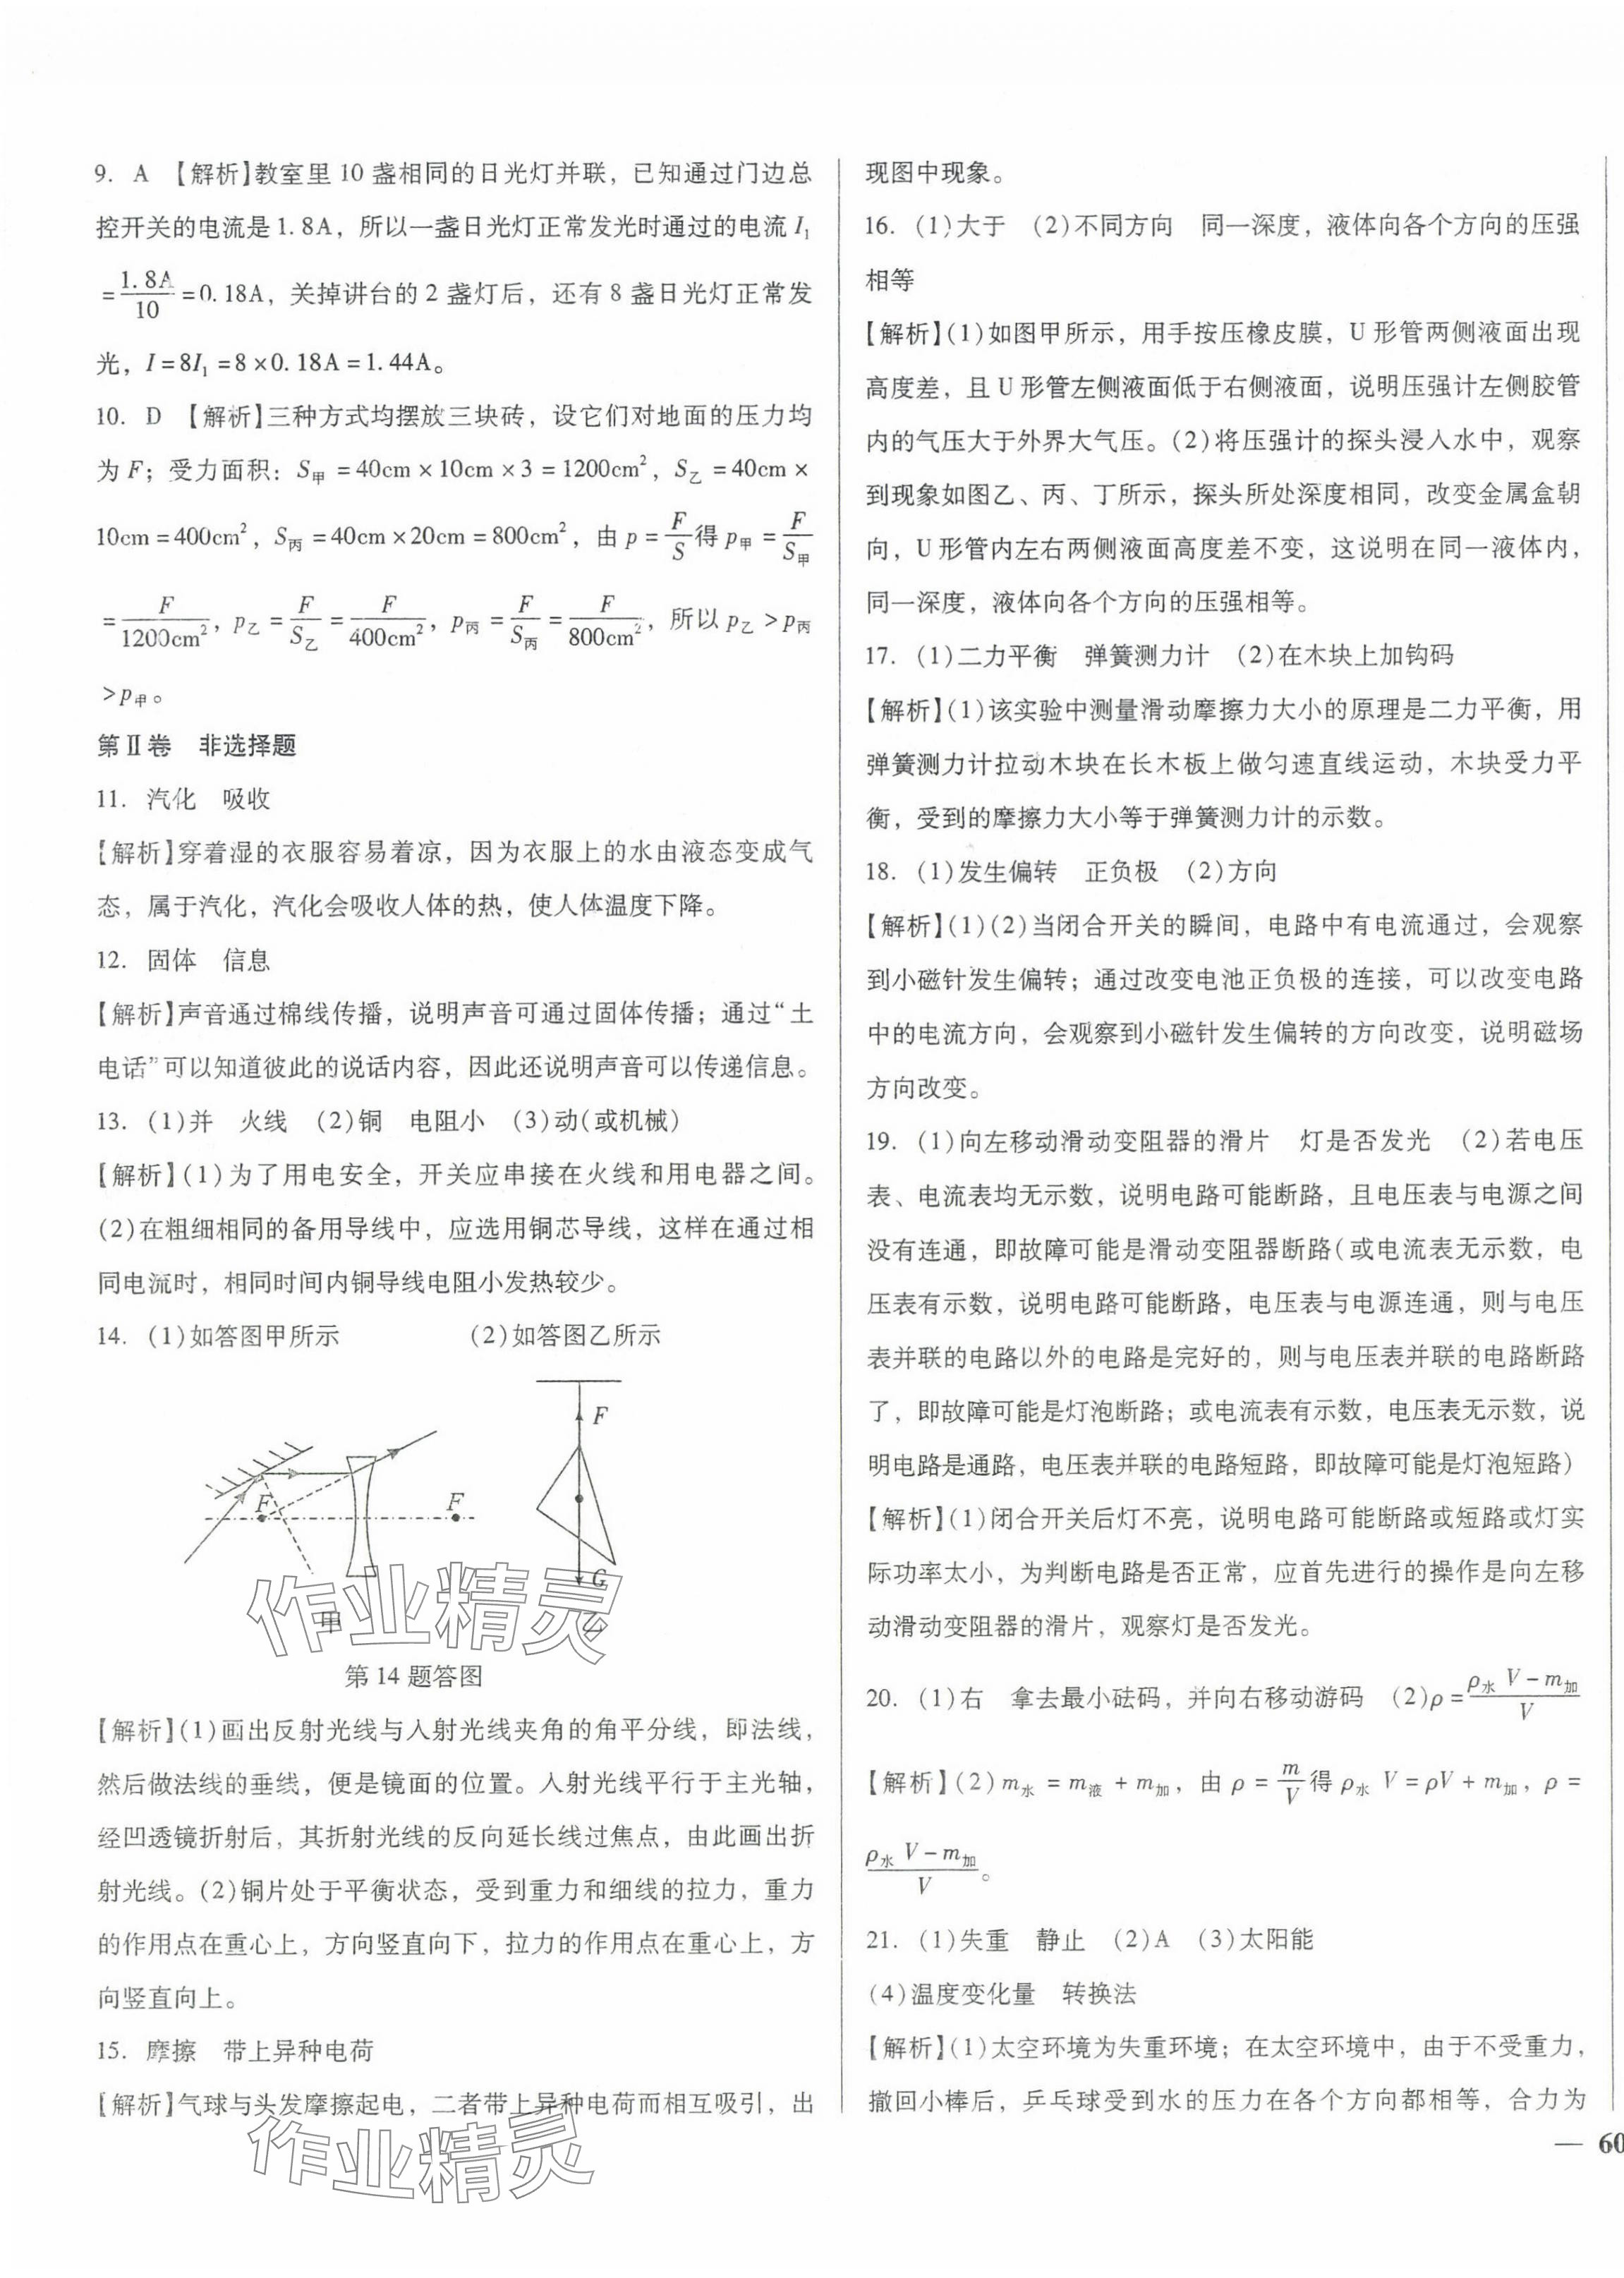 9. A 【解析】教室里 10 盏相同的日光灯并联，已知通过门边总
控开关的电流是 1.8A，所以一盏日光灯正常发光时通过的电流 I₁
=1.8A/10=0.18A，关掉讲台的 2 盏灯后，还有 8 盏日光灯正常发
光，I=8I₁=8×0.18A=1.44A。
10. D 【解析】三种方式均摆放三块砖，设它们对地面的压力均
为 F；受力面积：S甲=40cm×10cm×3=1200cm²，S乙=40cm×
10cm=400cm²，S丙=40cm×20cm=800cm²，由 p=F/S得 p甲=F/S甲
=F/1200cm²，p乙=F/S乙=F/400cm²，p丙=F/S丙=F/800cm²，所以 p乙>p丙
>p甲。
第Ⅱ卷 非选择题
11. 汽化 吸收
【解析】穿着湿的衣服容易着凉，因为衣服上的水由液态变成气
态，属于汽化，汽化会吸收人体的热，使人体温度下降。
12. 固体 信息
【解析】声音通过棉线传播，说明声音可通过固体传播；通过“土
电话”可以知道彼此的说话内容，因此还说明声音可以传递信息。
13. (1)并 火线 (2)铜 电阻小 (3)动(或机械)
【解析】(1)为了用电安全，开关应串接在火线和用电器之间。
(2)在粗细相同的备用导线中，应选用铜芯导线，这样在通过相
同电流时，相同时间内铜导线电阻小发热较少。
14. (1)如答图甲所示 (2)如答图乙所示
F
F
F
G
甲
乙
第 14 题答图
【解析】(1)画出反射光线与入射光线夹角的角平分线，即法线，
然后做法线的垂线，便是镜面的位置。入射光线平行于主光轴，
经凹透镜折射后，其折射光线的反向延长线过焦点，由此画出折
射光线。(2)铜片处于平衡状态，受到重力和细线的拉力，重力
的作用点在重心上，方向竖直向下，拉力的作用点在重心上，方
向竖直向上。
15. 摩擦 带上异种电荷
【解析】气球与头发摩擦起电，二者带上异种电荷而相互吸引，出
现图中现象。
16. (1)大于 (2)不同方向 同一深度，液体向各个方向的压强
相等
【解析】(1)如图甲所示，用手按压橡皮膜，U 形管两侧液面出现
高度差，且 U 形管左侧液面低于右侧液面，说明压强计左侧胶管
内的气压大于外界大气压。(2)将压强计的探头浸入水中，观察
到现象如图乙、丙、丁所示，探头所处深度相同，改变金属盒朝
向，U 形管内左右两侧液面高度差不变，这说明在同一液体内，
同一深度，液体向各个方向的压强相等。
17. (1)二力平衡 弹簧测力计 (2)在木块上加钩码
【解析】(1)该实验中测量滑动摩擦力大小的原理是二力平衡，用
弹簧测力计拉动木块在长木板上做匀速直线运动，木块受力平
衡，受到的摩擦力大小等于弹簧测力计的示数。
18. (1)发生偏转 正负极 (2)方向
【解析】(1)(2)当闭合开关的瞬间，电路中有电流通过，会观察
到小磁针发生偏转；通过改变电池正负极的连接，可以改变电路
中的电流方向，会观察到小磁针发生偏转的方向改变，说明磁场
方向改变。
19. (1)向左移动滑动变阻器的滑片 灯是否发光 (2)若电压
表、电流表均无示数，说明电路可能断路，且电压表与电源之间
没有连通，即故障可能是滑动变阻器断路(或电流表无示数，电
压表有示数，说明电路可能断路，电压表与电源连通，则与电压
表并联的电路以外的电路是完好的，则与电压表并联的电路断路
了，即故障可能是灯泡断路；或电流表有示数，电压表无示数，说
明电路是通路，电压表并联的电路短路，即故障可能是灯泡短路)
【解析】(1)闭合开关后灯不亮，说明电路可能断路或短路或灯实
际功率太小，为判断电路是否正常，应首先进行的操作是向左移
动滑动变阻器的滑片，观察灯是否发光。
20. (1)右 拿去最小砝码，并向右移动游码 (2)ρ=(ρ水 V-m加)/V
【解析】(2)m水=m液+m加，由 ρ=m/V得 ρ水 V=ρV+m加，ρ=
(ρ水 V-m加)/V。
21. (1)失重 静止 (2)A (3)太阳能
(4)温度变化量 转换法
【解析】(1)太空环境为失重环境；在太空环境中，由于不受重力，
撤回小棒后，乒乓球受到水的压力在各个方向都相等，合力为
— 60
作业精灵
作业精灵